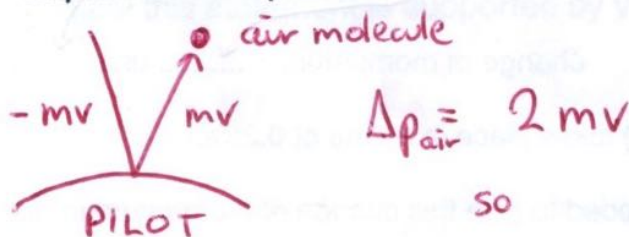 air molecule
- mv mv Δp air = 2 mv
so
PILOT